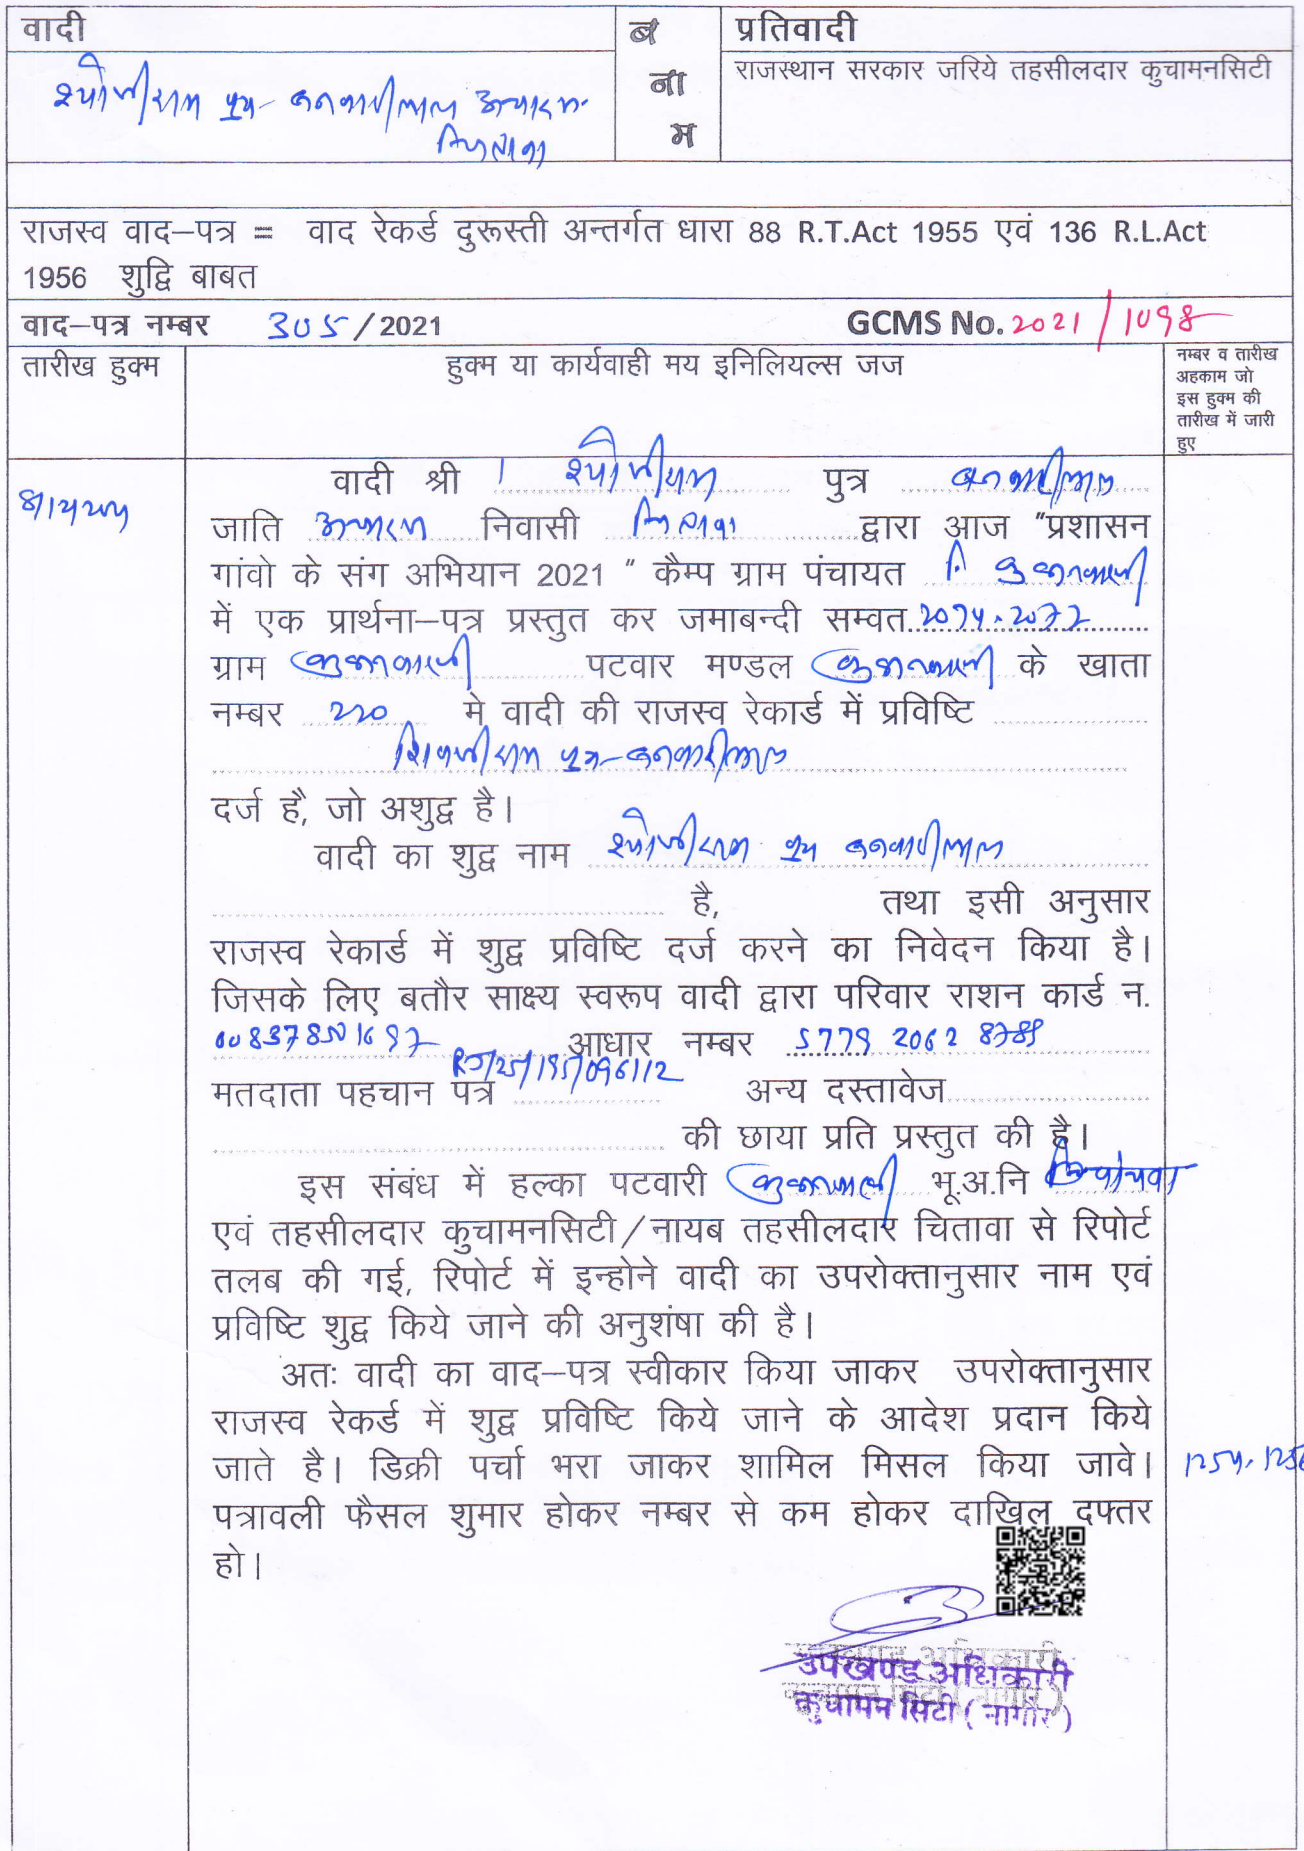 वादी
ब
ना
म
प्रतिवादी
श्योजीराम पुत्र बनवारीलाल
राजस्थान सरकार जरिये तहसीलदार कुचामनसिटी
राजस्व वाद–पत्र = वाद रेकर्ड दुरूस्ती अन्तर्गत धारा 88 R.T.Act 1955 एवं 136 R.L.Act
1956 शुद्वि बाबत
वाद–पत्र नम्बर 305/2021 GCMS No. 2021/1098
तारीख हुक्म
हुक्म या कार्यवाही मय इनिलियल्स जज
नम्बर व तारीख
अहकाम जो
इस हुक्म की
तारीख में जारी
हुए
वादी श्री श्योजीराम पुत्र बनवारीलाल
जाति निवासी द्वारा आज "प्रशासन
गांवो के संग अभियान 2021 " कैम्प ग्राम पंचायत
में एक प्रार्थना–पत्र प्रस्तुत कर जमाबन्दी सम्वत
ग्राम पटवार मण्डल के खाता
नम्बर 220 मे वादी की राजस्व रेकार्ड में प्रविष्टि
शिवजीराम पुत्र–बनवारीलाल
दर्ज है, जो अशुद्व है।
वादी का शुद्व नाम श्योजीराम पुत्र बनवारीलाल
है, तथा इसी अनुसार
राजस्व रेकार्ड में शुद्व प्रविष्टि दर्ज करने का निवेदन किया है।
जिसके लिए बतौर साक्ष्य स्वरूप वादी द्वारा परिवार राशन कार्ड न.
आधार नम्बर 5779 2062 8789
मतदाता पहचान पत्र RJ/25/195/096112 अन्य दस्तावेज
की छाया प्रति प्रस्तुत की है।
इस संबंध में हल्का पटवारी भू.अ.नि
एवं तहसीलदार कुचामनसिटी/नायब तहसीलदार चितावा से रिपोर्ट
तलब की गई, रिपोर्ट में इन्होने वादी का उपरोक्तानुसार नाम एवं
प्रविष्टि शुद्व किये जाने की अनुशंषा की है।
अतः वादी का वाद–पत्र स्वीकार किया जाकर उपरोक्तानुसार
राजस्व रेकर्ड में शुद्व प्रविष्टि किये जाने के आदेश प्रदान किये
जाते है। डिक्री पर्चा भरा जाकर शामिल मिसल किया जावे।
पत्रावली फैसल शुमार होकर नम्बर से कम होकर दाखिल दफ्तर
हो।
उपखण्ड अधिकारी
कुचामन सिटी ( नागौर )